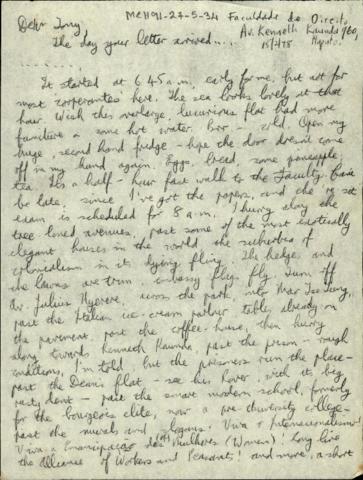 Dear Tony,
MCH91-27-5-34 Faculdade de Direito,
Av. Kenneth Kaunda 960,
15/4/78 Maputo.
The day your letter arrived....
It started at 6.45 a.m., early for me, but not for
most cooperantes here. The sea looks lovely at that
hour. Wish this overlarge, luxurious flat had more
furniture & some hot water. Brr - cold. Open my
huge, second hand fridge - hope the door doesn't come
off in my hand again. Eggs, bread, some pineapple,
tea. It's a half-hour fast walk to the Faculty.
be late, since I've got the papers, and the re-sit
exam is scheduled for 8 a.m. I hurry along the
tree lined avenues, past some of the most exotically
elegant houses in the world, the suburbs of
colonialism in its dying fling. The hedges and
the lawns are trim, embassy flags fly. Turn off
Av. Julius Nyerere, across the park, into Mao Tse Tung,
past the Italian ice-cream parlour, tables already on
the pavement, past the coffee-house, then hurry
along towards Kenneth Kaunda, past the prison - rough
conditions, I'm told, but the prisoners run the place -
past the Dean's flat - see his Rover, with its big
rusty dent - past the smart modern school, formerly
for the bourgeois elite, now a pre-university college -
past the murals and slogans: Viva o Internacionalismo!
Viva a Emancipação das (of) Mulheres (Women)! Long live
the Alliance of Workers and Peasants! and more, a short